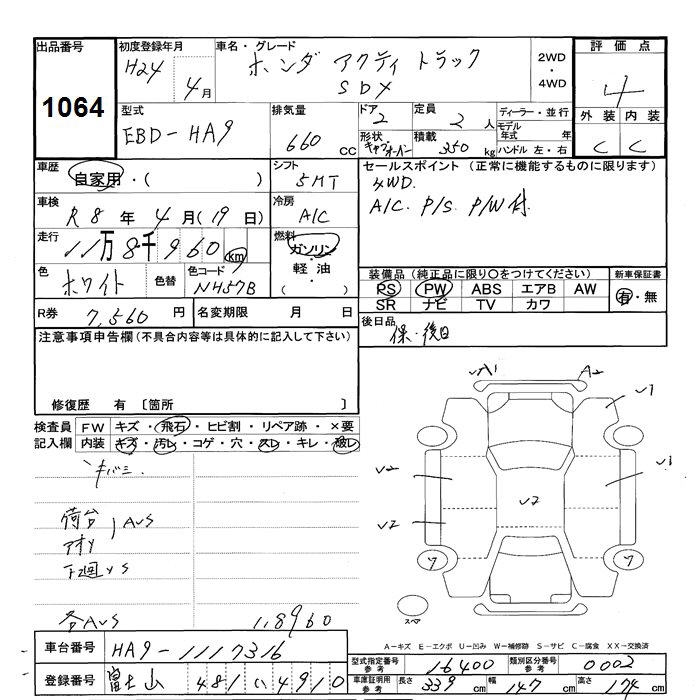 出品番号
1064
初度登録年月
H24年4月
車名・グレード
ホンダ アクティ トラック
SDX
2WD
・
4WD
評価点
4
外装 内装
C C
型式
EBD-HA9
排気量
660 cc
ドア
2
形状
キャブオーバー
定員
2 人
積載
350 kg
ディーラー・並行
モデル
年式 年
ハンドル 左・右
車歴
自家用・( )
シフト
5MT
セールスポイント (正常に機能するものに限ります)
4WD.
A/C. P/S. P/W 付.
車検
R8年 4月 (19日)
冷房
A/C
走行
11万8千960 km
燃料
ガソリン
・
軽油
・
( )
色
ホワイト
色替
色コード
NH57B
装備品 (純正品に限り○をつけてください)
PS PW ABS エアB AW
SR ナビ TV カワ
新車保証書
有・無
R券
7,560 円
名変期限 月 日
後日品
保・後日
注意事項申告欄 (不具合内容等は具体的に記入して下さい)
修復歴 有 〔箇所 〕
検査員
記入欄
FW キズ・飛石・ヒビ割・リペア跡・×要
内装 キズ・汚レ・コゲ・穴・スレ・キレ・破レ
荷台
アオリ
AVS
下回VS
各AVS
118960
VA1 A2
V1
V2 V1
V2
V2
7 7
スペア
A-キズ E-エクボ U-凹み W-補修跡 S-サビ C-腐食 XX-交換済
車台番号
HA9-1117316
登録番号
富士山 481 い 4910
型式指定番号
参考
16400
類別区分番号
参考
0002
車庫証明用
参考
長さ 339 cm 幅 147 cm 高さ 174 cm